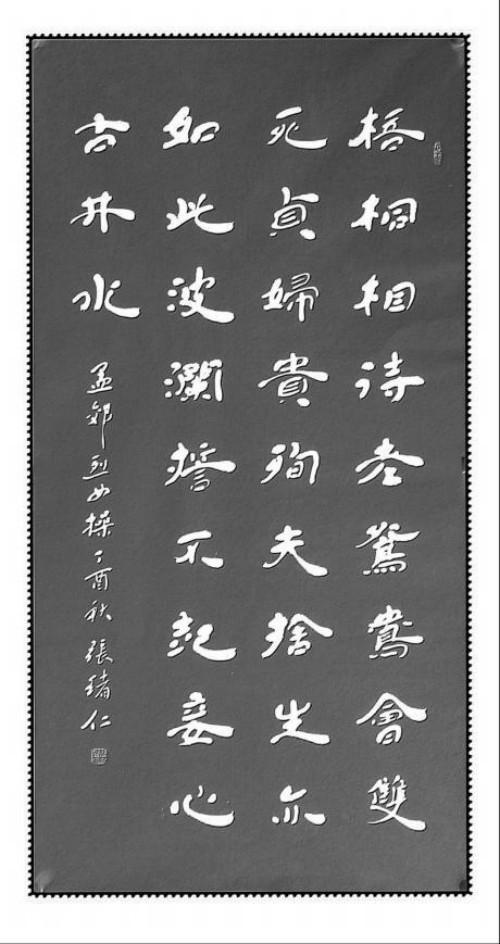 梧桐相待老鴛鴦會雙
死貞婦貴殉夫捨生亦
如此波瀾誓不起妾心
古井水
孟郊烈女操丁酉秋張緒仁